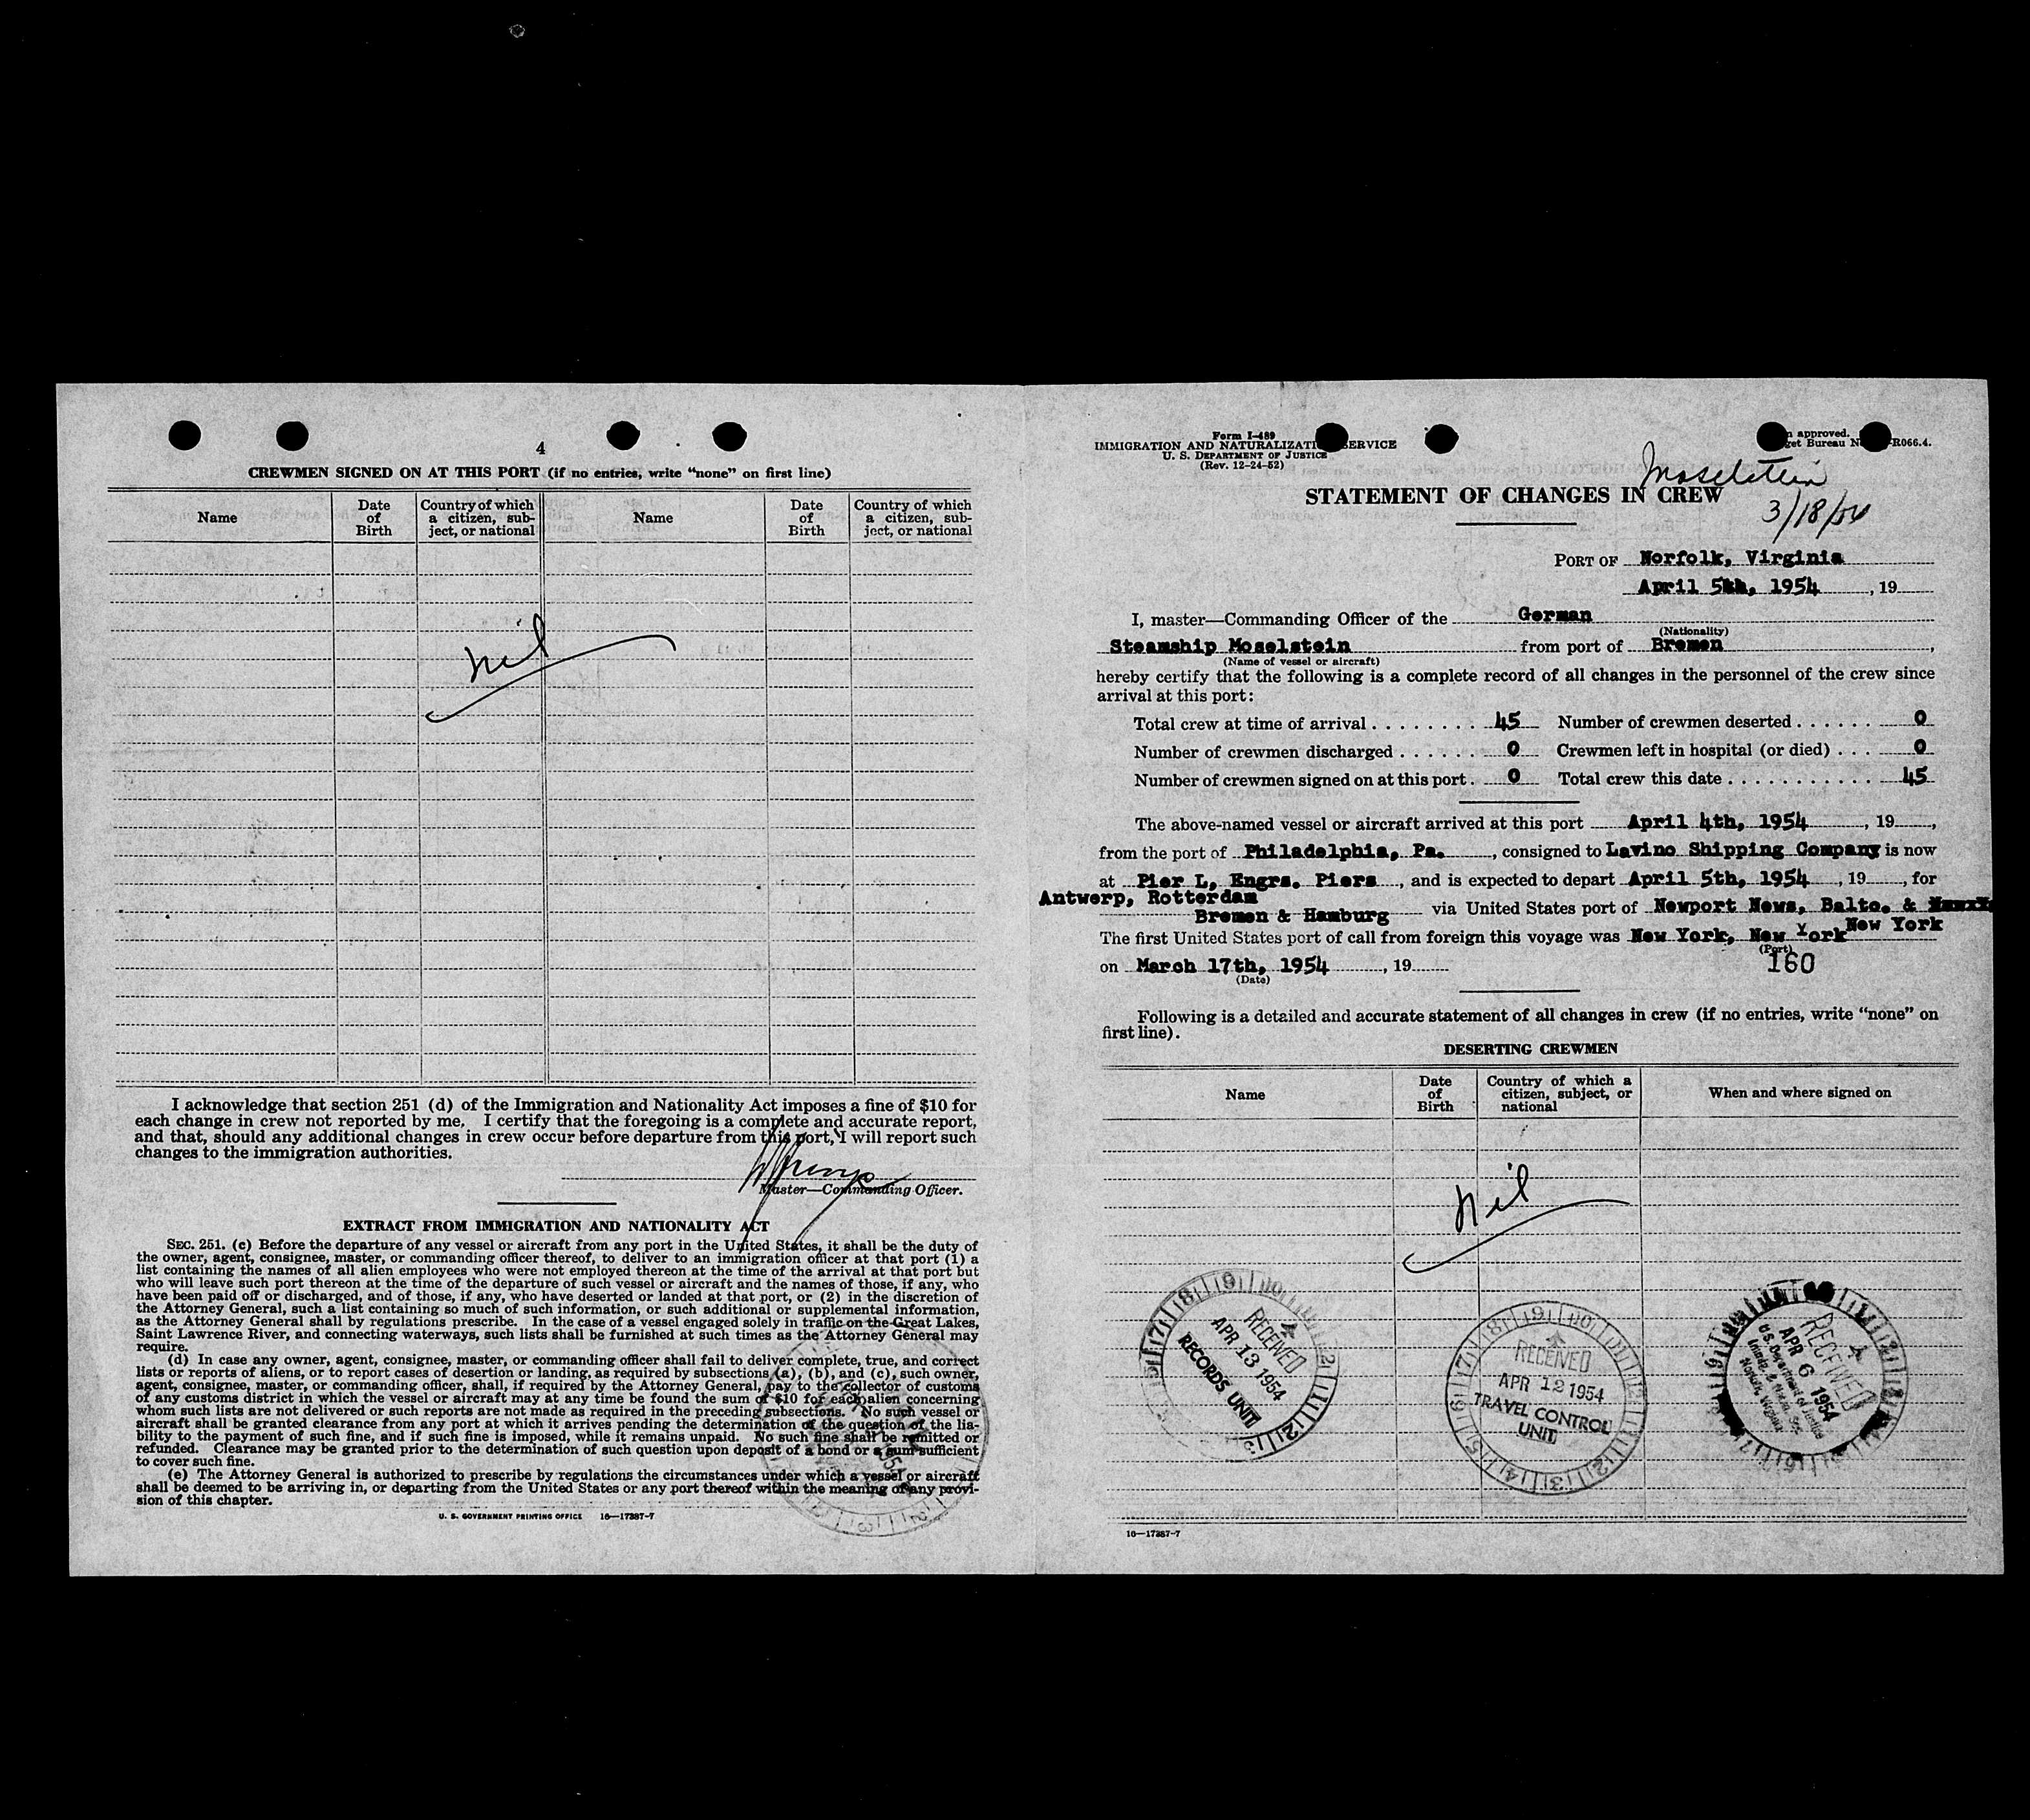 4
CREWMEN SIGNED ON AT THIS PORT (if no entries, write "none" on first line)
Name
Date of Birth
Country of which a citizen, subject, or national
Name
Date of Birth
Country of which a citizen, subject, or national
nil
I acknowledge that section 251 (d) of the Immigration and Nationality Act imposes a fine of $10 for
each change in crew not reported by me. I certify that the foregoing is a complete and accurate report,
and that, should any additional changes in crew occur before departure from this port, I will report such
changes to the immigration authorities.
Master—Commanding Officer.
EXTRACT FROM IMMIGRATION AND NATIONALITY ACT
SEC. 251. (c) Before the departure of any vessel or aircraft from any port in the United States, it shall be the duty of
the owner, agent, consignee, master, or commanding officer thereof, to deliver to an immigration officer at that port (1) a
list containing the names of all alien employees who were not employed thereon at the time of the arrival at that port but
who will leave such port thereon at the time of the departure of such vessel or aircraft and the names of those, if any, who
have been paid off or discharged, and of those, if any, who have deserted or landed at that port, or (2) in the discretion of
the Attorney General, such a list containing so much of such information, or such additional or supplemental information,
as the Attorney General shall by regulations prescribe. In the case of a vessel engaged solely in traffic on the Great Lakes,
Saint Lawrence River, and connecting waterways, such lists shall be furnished at such times as the Attorney General may
require.
(d) In case any owner, agent, consignee, master, or commanding officer shall fail to deliver complete, true, and correct
lists or reports of aliens, or to report cases of desertion or landing, as required by subsections (a), (b), and (c), such owner,
agent, consignee, master, or commanding officer, shall, if required by the Attorney General, pay to the collector of customs
of any customs district in which the vessel or aircraft may at any time be found the sum of $10 for each alien concerning
whom such lists are not delivered or such reports are not made as required in the preceding subsections. No such vessel or
aircraft shall be granted clearance from any port at which it arrives pending the determination of the question of the lia-
bility to the payment of such fine, and if such fine is imposed, while it remains unpaid. No such fine shall be remitted or
refunded. Clearance may be granted prior to the determination of such question upon deposit of a bond or a sum sufficient
to cover such fine.
(e) The Attorney General is authorized to prescribe by regulations the circumstances under which a vessel or aircraft
shall be deemed to be arriving in, or departing from the United States or any port thereof within the meaning of any provi-
sion of this chapter.
U. S. GOVERNMENT PRINTING OFFICE 16—17387-7
Form I-489
IMMIGRATION AND NATURALIZATI ERVICE
U. S. DEPARTMENT OF JUSTICE
(Rev. 12-24-52)
approved.
et Bureau N R066.4.
Moselstein
STATEMENT OF CHANGES IN CREW
3/18/54
PORT OF Norfolk, Virginia
April 5th, 1954, 19
I, master—Commanding Officer of the German
(Nationality)
Steamship Moselstein from port of Bremen,
(Name of vessel or aircraft)
hereby certify that the following is a complete record of all changes in the personnel of the crew since
arrival at this port:
Total crew at time of arrival 45 Number of crewmen deserted 0
Number of crewmen discharged 0 Crewmen left in hospital (or died) 0
Number of crewmen signed on at this port 0 Total crew this date 45
The above-named vessel or aircraft arrived at this port April 4th, 1954, 19,
from the port of Philadelphia, Pa., consigned to Lavino Shipping Company is now
at Pier L, Engrs. Piers, and is expected to depart April 5th, 1954, 19, for
Antwerp, Rotterdam
Bremen & Hamburg via United States port of Newport News, Balto. &
New York
The first United States port of call from foreign this voyage was New York, New York
(Port)
on March 17th, 1954, 19
160
(Date)
Following is a detailed and accurate statement of all changes in crew (if no entries, write "none" on
first line).
DESERTING CREWMEN
Name
Date of Birth
Country of which a citizen, subject, or national
When and where signed on
Nil
RECEIVED
APR 13 1954
RECORDS UNIT
RECEIVED
APR 12 1954
TRAVEL CONTROL
UNIT
RECEIVED
APR 6 1954
U.S. Department of Justice
Norfolk, Virginia
16—17387-7